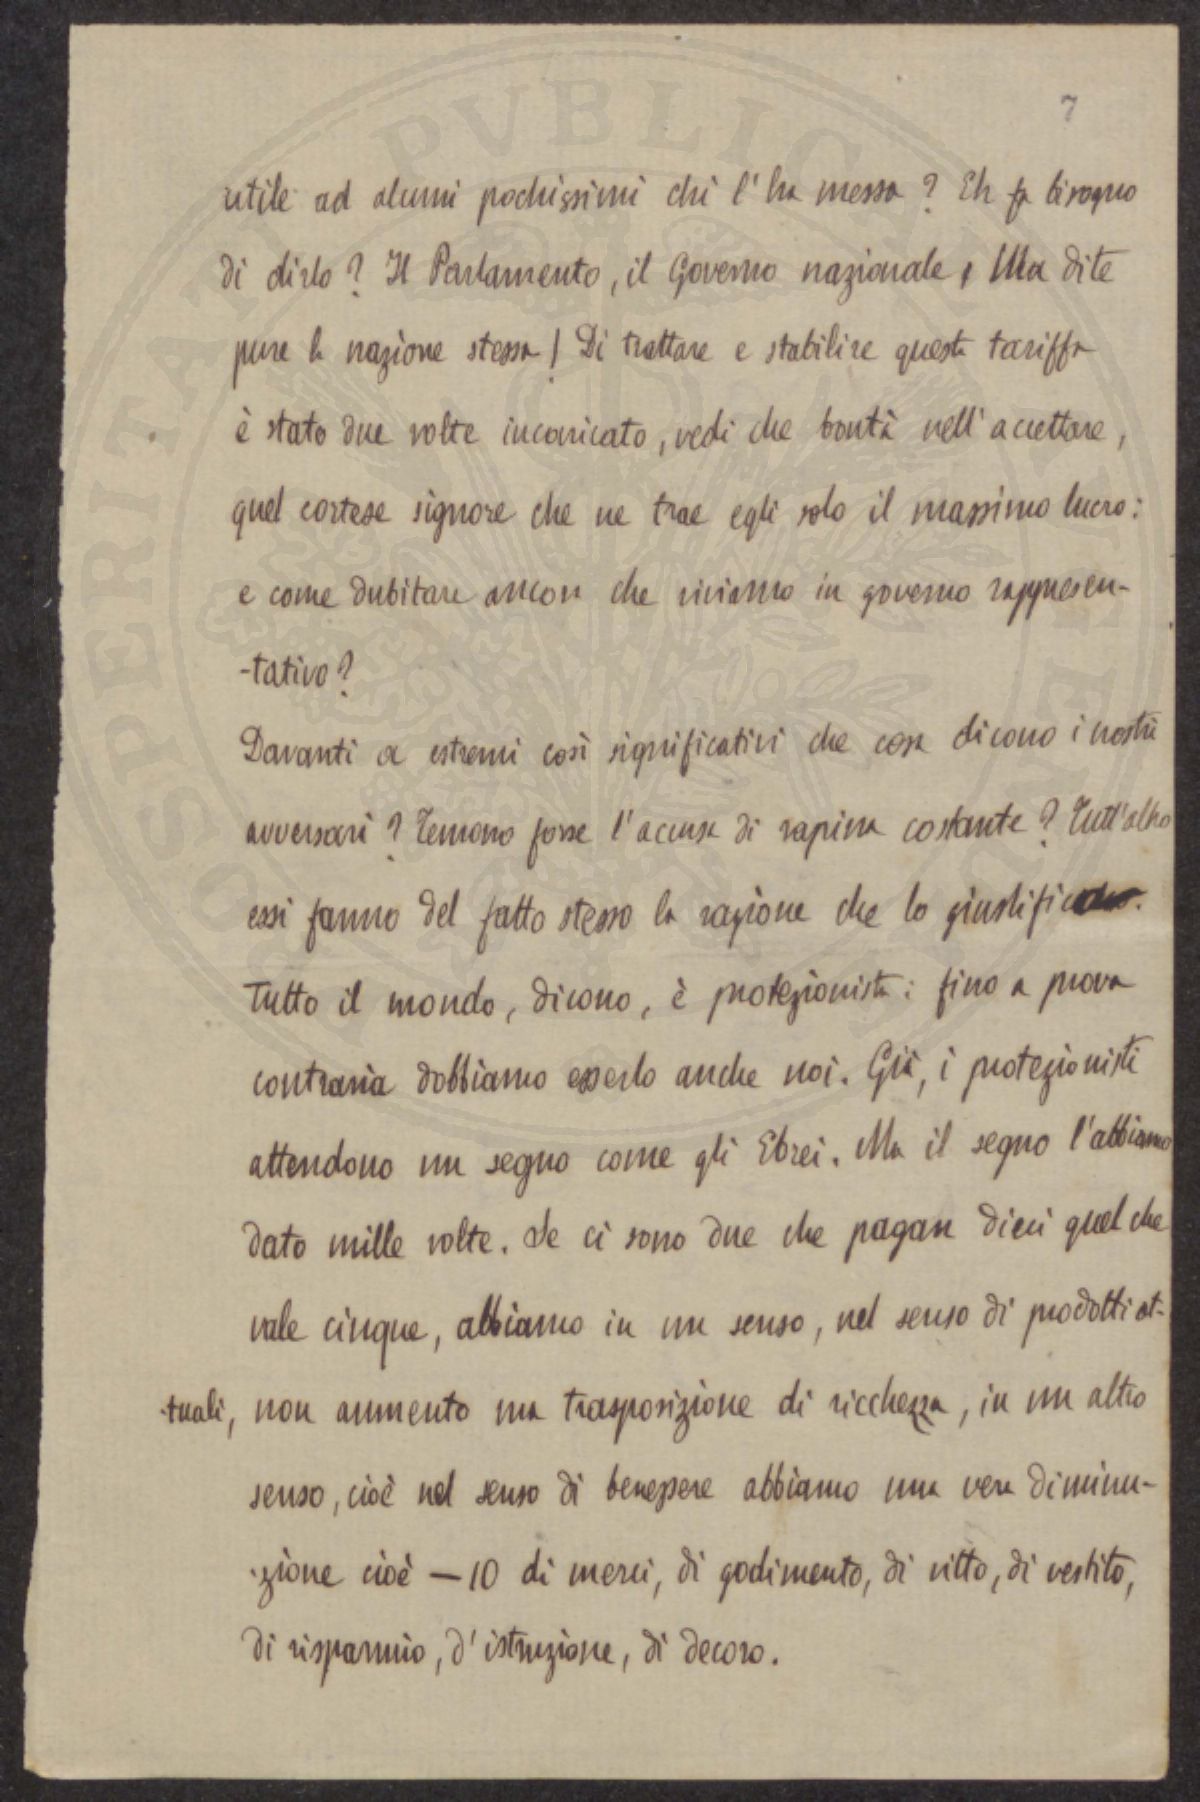 7
utile ad alcuni pochissimi chi l'ha messa? Eh fa bisogno
di dirlo? Il Parlamento, il Governo nazionale, Ma dite
pure la nazione stessa! Di trattare e stabilire questa tariffa
è stato due volte incaricato, vedi che bontà nell'accettare,
quel cortese signore che ne trae egli solo il massimo lucro:
e come dubitare ancora che viviamo in governo rappresen-
-tativo?
Davanti a estremi così significativi che cosa dicono i nostri
avversari? Temono forse l'accusa di rapina costante? Tutt'altro
essi fanno del fatto stesso la ragione che lo
Tutto il mondo, dicono, è protezionista: fino a prova
contraria dobbiamo esserlo anche noi. Già, i protezionisti
attendono un segno come gli Ebrei. Ma il segno l'abbiamo
dato mille volte. Se ci sono due che pagan dieci quel che
vale cinque, abbiamo in un senso, nel senso di prodotti at-
-tuali, non aumento ma trasposizione di ricchezza, in un altro
senso, cioè nel senso di benessere abbiamo una vera diminu-
-zione cioè — 10 di merci, di godimento, di vitto, di vestito,
di risparmio, d'istruzione, di decoro.